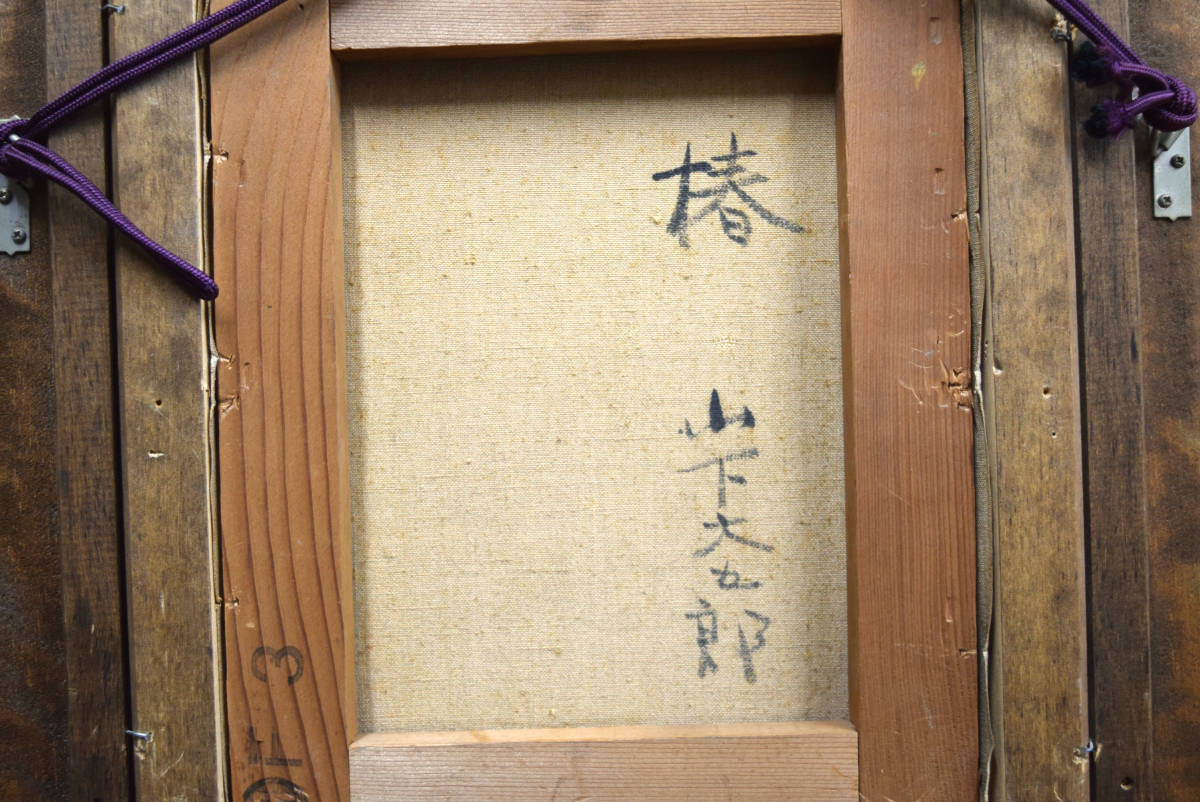 椿
山下大五郎
3